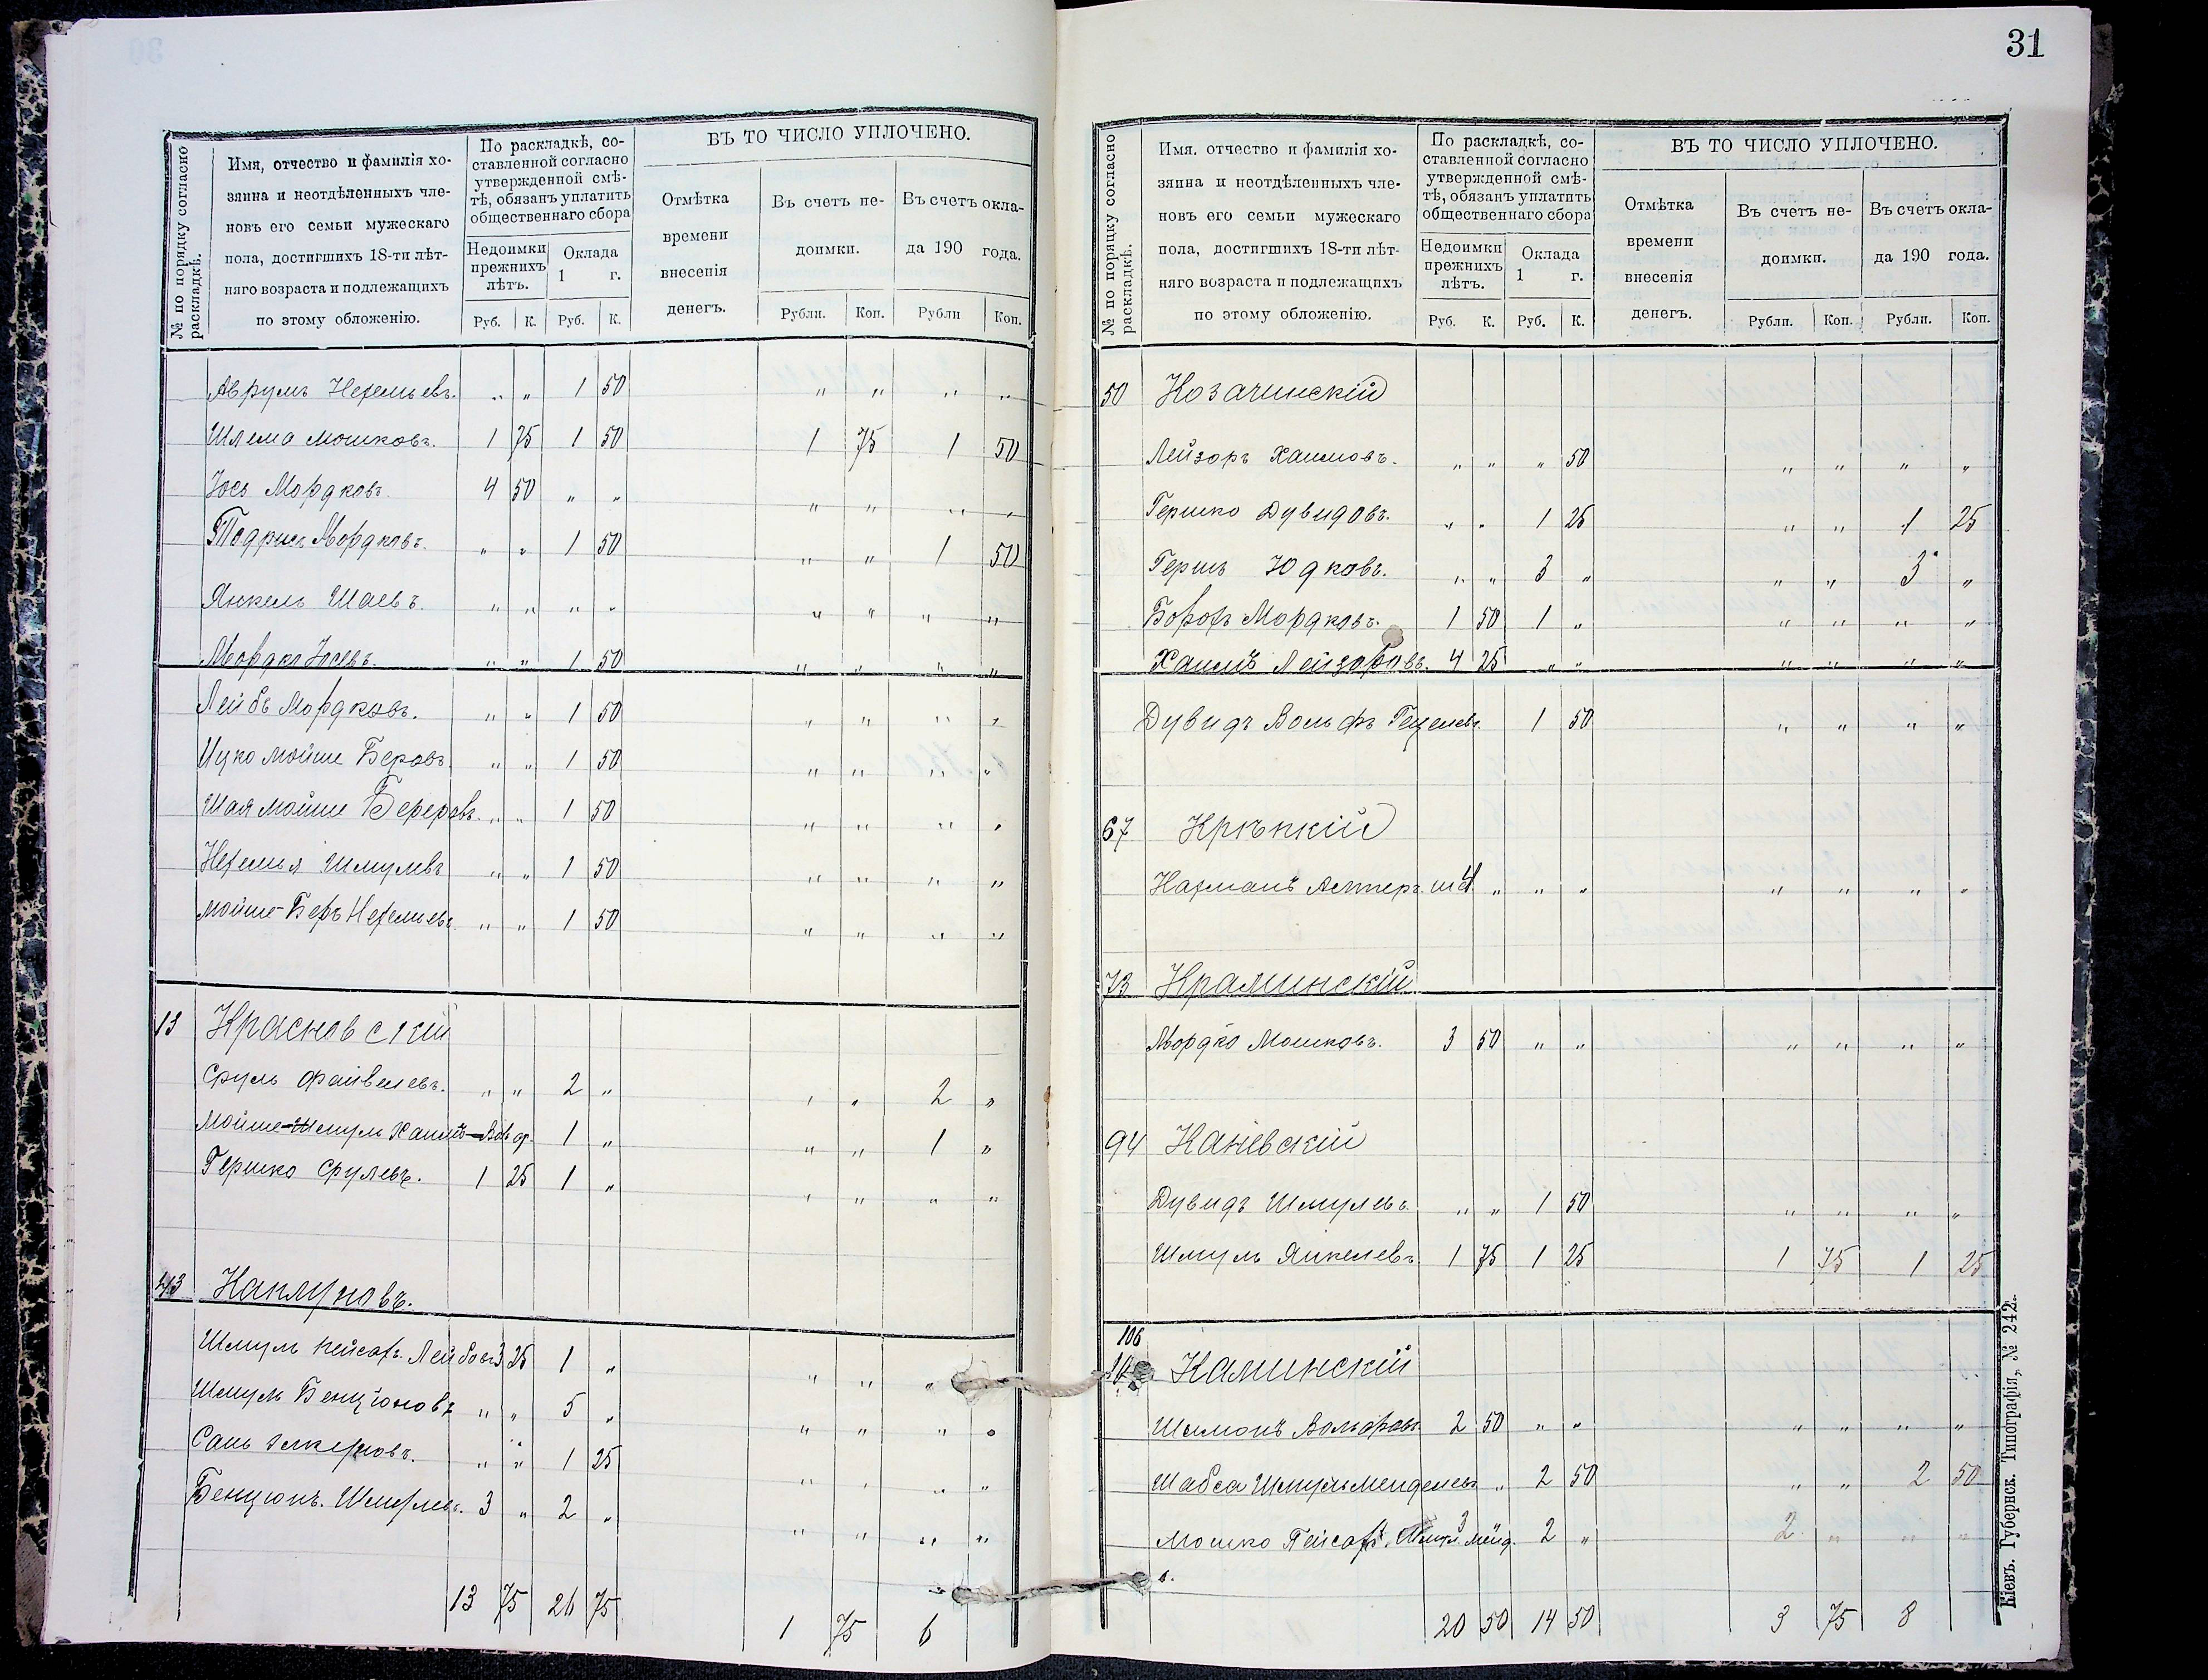 31
№ по порядку согласно раскладкѣ.
Имя, отчество и фамилія хо-
зяина и неотдѣленныхъ чле-
новъ его семьи мужескаго
пола, достигшихъ 18-ти лѣт-
няго возраста и подлежащихъ
по этому обложенію.
По раскладкѣ, со-
ставленной согласно
утвержденной смѣ-
тѣ, обязанъ уплатить
общественнаго сбора
Недоимки
прежнихъ
лѣтъ.
Оклада
1 г.
Руб. К. Руб. К.
ВЪ ТО ЧИСЛО УПЛОЧЕНО.
Отмѣтка
времени
внесенія
денегъ.
Въ счетъ не-
доимки.
Въ счетъ окла-
да 190 года.
Рубли. Коп. Рубли Коп.
Аврумъ Нехемьевъ. " " 1 50 " " " "
Шлема Мошковъ. 1 75 1 50 1 75 1 50
Іось Мордковъ. 4 50 " " " " " "
Мордковъ. " " 1 50 " " 1 50
Янкель Шаевъ. " " " " " " " "
Мордко Іосевъ. " " 1 50 " " " "
Лейбъ Мордковъ. " " 1 50 " " " "
Ицко Мойше Беровъ. " " 1 50 " " " "
Шая Мойше " " 1 50 " " " "
Нехемія Шмулевъ " " 1 50 " " " "
Мойше-Беръ Нехемьевъ " " 1 50 " " " "
13 Красновскій
Сруль Файвелевъ. " " 2 " " " 2 "
Мойше-Шмуль Хаимъ- 1 " " " 1 "
Гершко Срулевъ. 1 25 1 " " " " "
43 Каклуновъ.
Шмуль Пейсах. Лейбовъ 3 25 1 " " " "
Шмуль Бенціоновъ " " 5 " " " " "
" " 1 25 " " " "
Бенционъ. Шмулев. 3 " 2 " " " " "
13 75 26 75 1 75 6
№ по порядку согласно раскладкѣ.
Имя. отчество и фамилія хо-
зяина и неотдѣленныхъ чле-
новъ его семьи мужескаго
пола, достигшихъ 18-ти лѣт-
няго возраста и подлежащихъ
по этому обложенію.
По раскладкѣ, со-
ставленной согласно
утвержденной смѣ-
тѣ, обязанъ уплатить
общественнаго сбора
Недоимки
прежнихъ
лѣтъ.
Оклада
1 г.
Руб. К. Руб. К.
ВЪ ТО ЧИСЛО УПЛОЧЕНО.
Отмѣтка
времени
внесенія
денегъ.
Въ счетъ не-
доимки.
Въ счетъ окла-
да 190 года.
Рубли. Коп. Рубли. Коп.
50 Козачинскій
Лейзоръ Хаимовъ. " " " 50 " " " "
Гершко Дувидовъ. " " 1 25 " " 1 25
Гершъ Юдковъ. " " 3 " " " 3 "
Борохъ Мордковъ. 1 50 1 " " " " "
Хаимъ Лейзоровъ. 4 25 " " " " " "
Дувидъ Вольфъ Гецелевъ. 1 50 " " " "
67 Крѣпкій
Нахманъ 4 " " " " " " "
73 Краминскій
Мордко Мошковъ. 3 50 " " " " " "
94 Каневскій
Дувидъ Шмулевъ. " " 1 50 " " " "
Шмуль Янкелевъ 1 75 1 25 1 75 1 25
106
Каминскій
Шимонъ Вольфовъ. 2 50 " " " " " "
Шабса Шмуль Менделевъ " 2 50 " " 2 50
Мошко Пейсахъ. 3 2 " 2 " " "
20 50 14 50 3 75 8
Кіевъ. Губернск. Типографія, № 242.